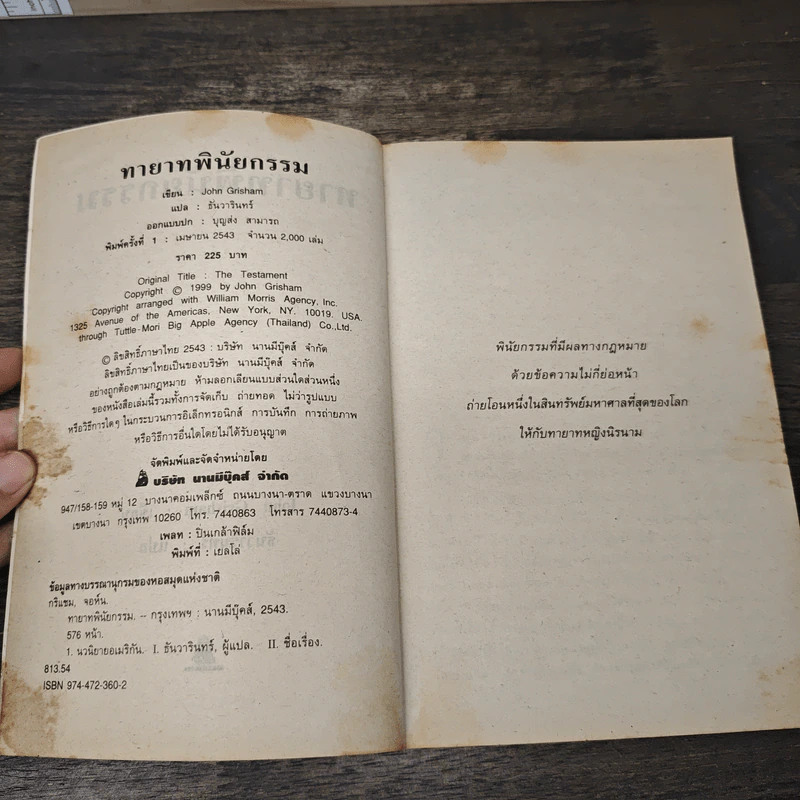 ทายาทพินัยกรรม
เขียน : John Grisham
แปล : ธันวารินทร์
ออกแบบปก : บุญส่ง สามารถ
พิมพ์ครั้งที่ 1 : เมษายน 2543 จำนวน 2,000 เล่ม
ราคา 225 บาท
Original Title : The Testament
Copyright © 1999 by John Grisham
Copyright arranged with William Morris Agency, Inc.
1325 Avenue of the Americas, New York, NY. 10019. USA.
through Tuttle-Mori Big Apple Agency (Thailand) Co.,Ltd.
© ลิขสิทธิ์ภาษาไทย 2543 : บริษัท นานมีบุ๊คส์ จำกัด
ลิขสิทธิ์ภาษาไทยเป็นของบริษัท นานมีบุ๊คส์ จำกัด
อย่างถูกต้องตามกฎหมาย ห้ามลอกเลียนแบบส่วนใดส่วนหนึ่ง
ของหนังสือเล่มนี้รวมทั้งการจัดเก็บ ถ่ายทอด ไม่ว่ารูปแบบ
หรือวิธีการใดๆ ในกระบวนการอิเล็กทรอนิกส์ การบันทึก การถ่ายภาพ
หรือวิธีการอื่นใดโดยไม่ได้รับอนุญาต
จัดพิมพ์และจัดจำหน่ายโดย
บริษัท นานมีบุ๊คส์ จำกัด
947/158-159 หมู่ 12 บางนาคอมเพล็กซ์ ถนนบางนา-ตราด แขวงบางนา
เขตบางนา กรุงเทพ 10260 โทร. 7440863 โทรสาร 7440873-4
เพลท : ปิ่นเกล้าฟิล์ม
พิมพ์ที่ : เยลโล่
ข้อมูลทางบรรณานุกรมของหอสมุดแห่งชาติ
กริแชม, จอห์น.
ทายาทพินัยกรรม. -- กรุงเทพฯ : นานมีบุ๊คส์, 2543.
576 หน้า.
1. นวนิยายอเมริกัน. I. ธันวารินทร์, ผู้แปล. II. ชื่อเรื่อง.
813.54
ISBN 974-472-360-2
พินัยกรรมที่มีผลทางกฎหมาย
ด้วยข้อความไม่กี่ย่อหน้า
ถ่ายโอนหนึ่งในสินทรัพย์มหาศาลที่สุดของโลก
ให้กับทายาทหญิงนิรนาม